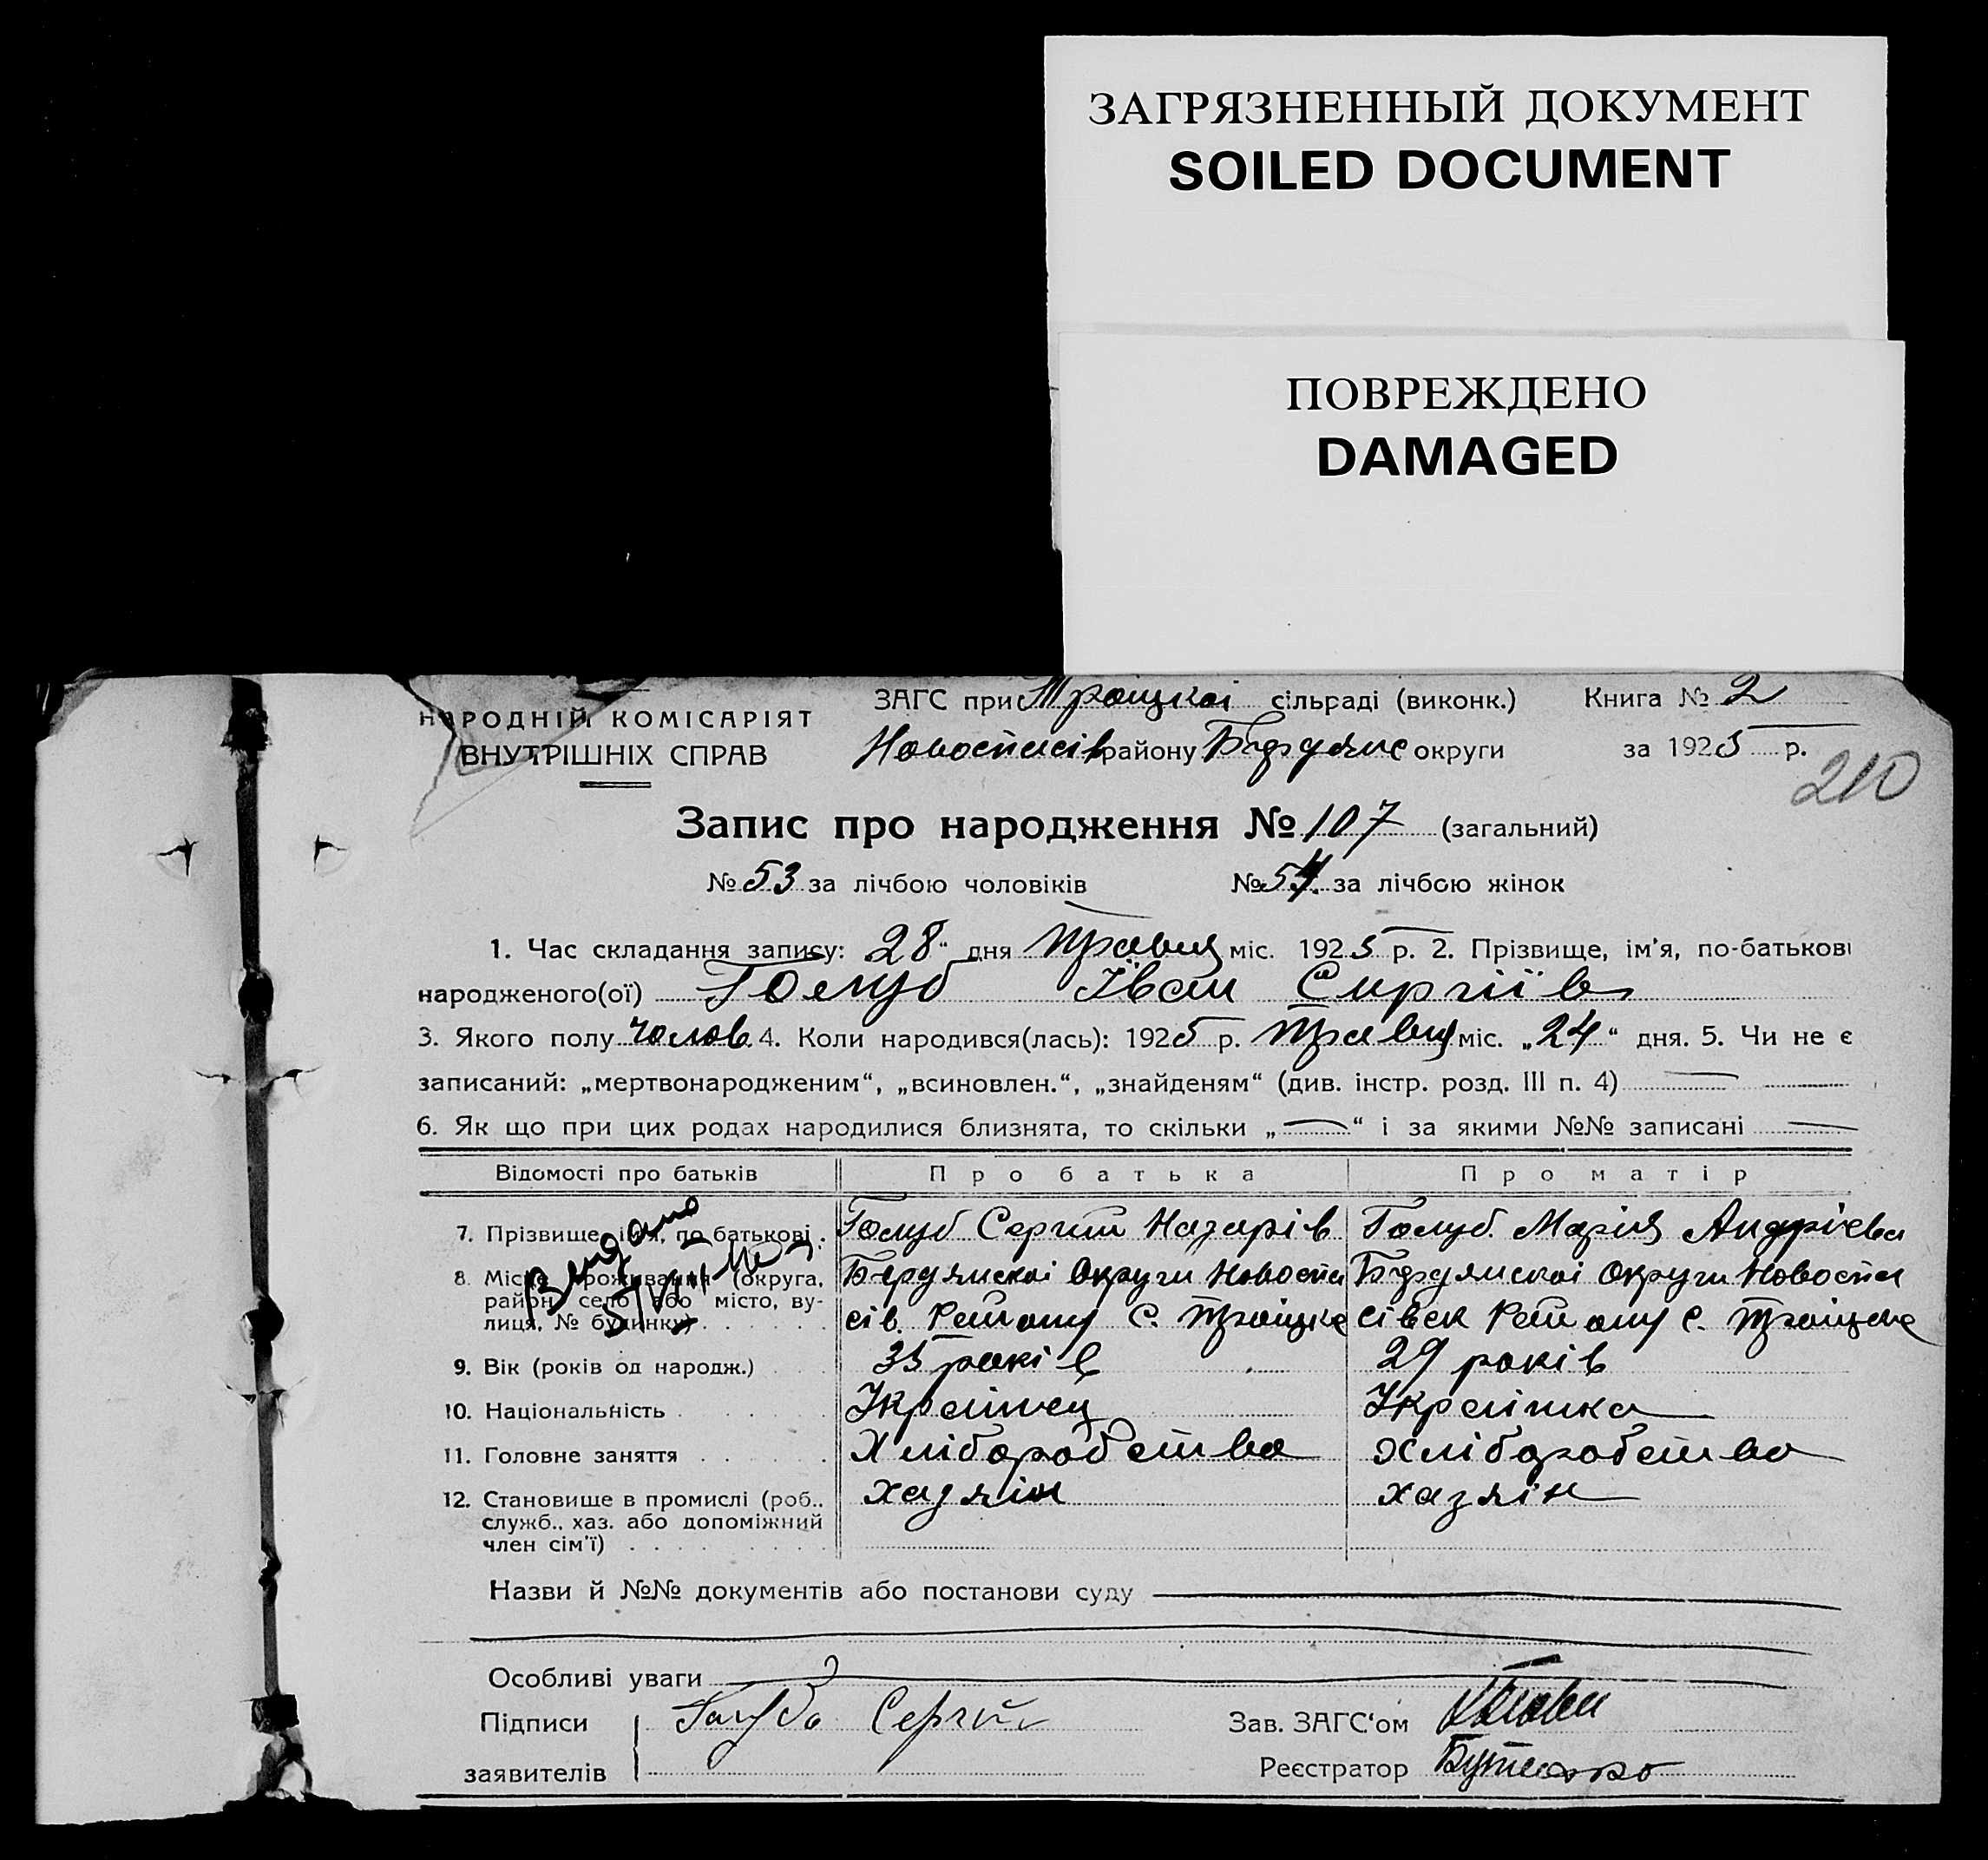 ЗАГРЯЗНЕННЫЙ ДОКУМЕНТ
SOILED DOCUMENT
ПОВРЕЖДЕНО
DAMAGED
НАРОДНІЙ КОМІСАРІЯТ
ВНУТРІШНІХ СПРАВ
ЗАГС при Троіцкоі сільраді (виконк.) Книга № 2
Новоспасів району Бердянс округи за 1925 р.
210
Запис про народження № 107 (загальний)
№ 53 за лічбою чоловіків № 54 за лічбою жінок
1. Час складання запису: 28 “ дня Травня міс. 1925 р. 2. Прізвище, ім'я, по-батькові
народженого(ої) Голуб Іван Сиргіїв
3. Якого полу чолов. 4. Коли народився(лась): 1925 р. Травня міс. „24“ дня. 5. Чи не є
записаний: „мертвонародженим“, „всиновлен.“, „знайденям“ (див. інстр. розд. III п. 4)
6. Як що при цих родах народилися близнята, то скільки „ “ і за якими №№ записані
Відомості про батьків Про батька Про матір
7. Прізвище, ім'я, по батькові . Голуб Сергій Назарів Голуб Марія Андріева
8. Місце проживання (округа, Бердянскоі Округи Новоспа Бердянскоі Округи Новоспа
район, село або місто, ву- сів. Району С. Троіцке сівск Району С. Троіцке
лиця, № будинку)
Видано
9. Вік (років од народж.) 35 років 29 років
10. Національність Украінец Украінка
11. Головне заняття Хліборобство Хліборобство
12. Становище в промислі (роб., хазяін хазяін
служб., хаз. або допоміжний
член сім'ї)
Назви й №№ документів або постанови суду
Особливі уваги
Підписи Голуб Сергий Зав. ЗАГС'ом
заявителів Реєстратор Бутенко